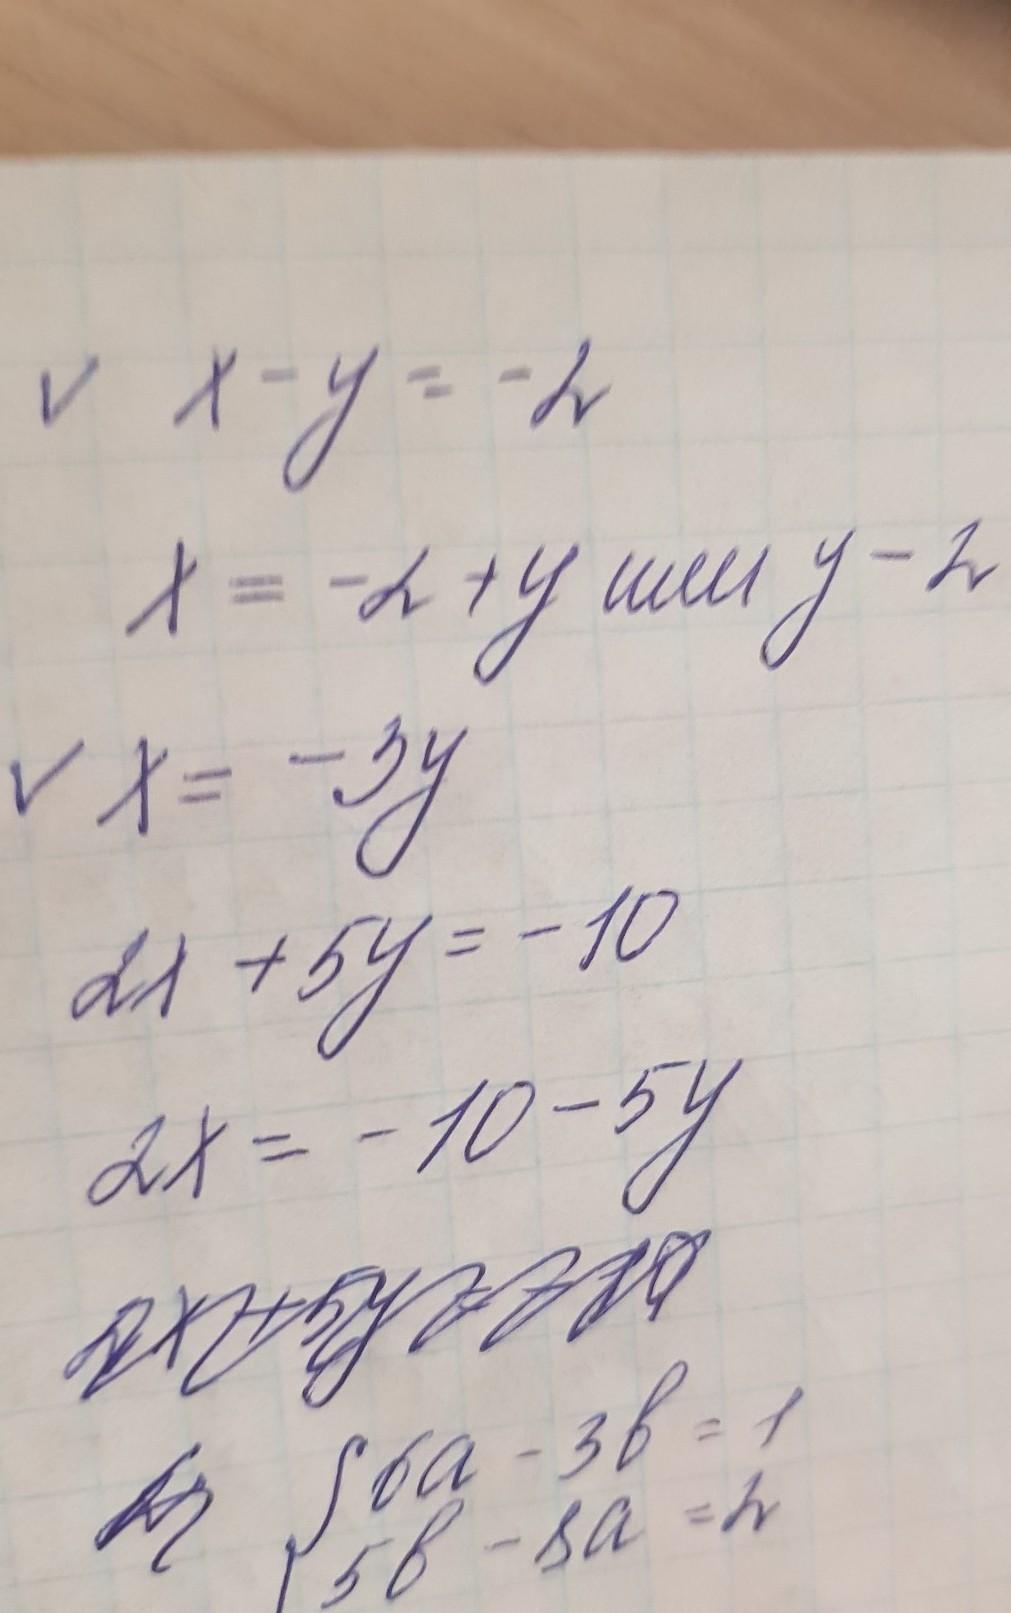 ✓ x - y = -2
x = -2 + y или y - 2
✓ x = -3y
2x + 5y = -10
2x = -10 - 5y
2x + 5y = -10
{ 6a - 3b = 1
5b - 8a = 2